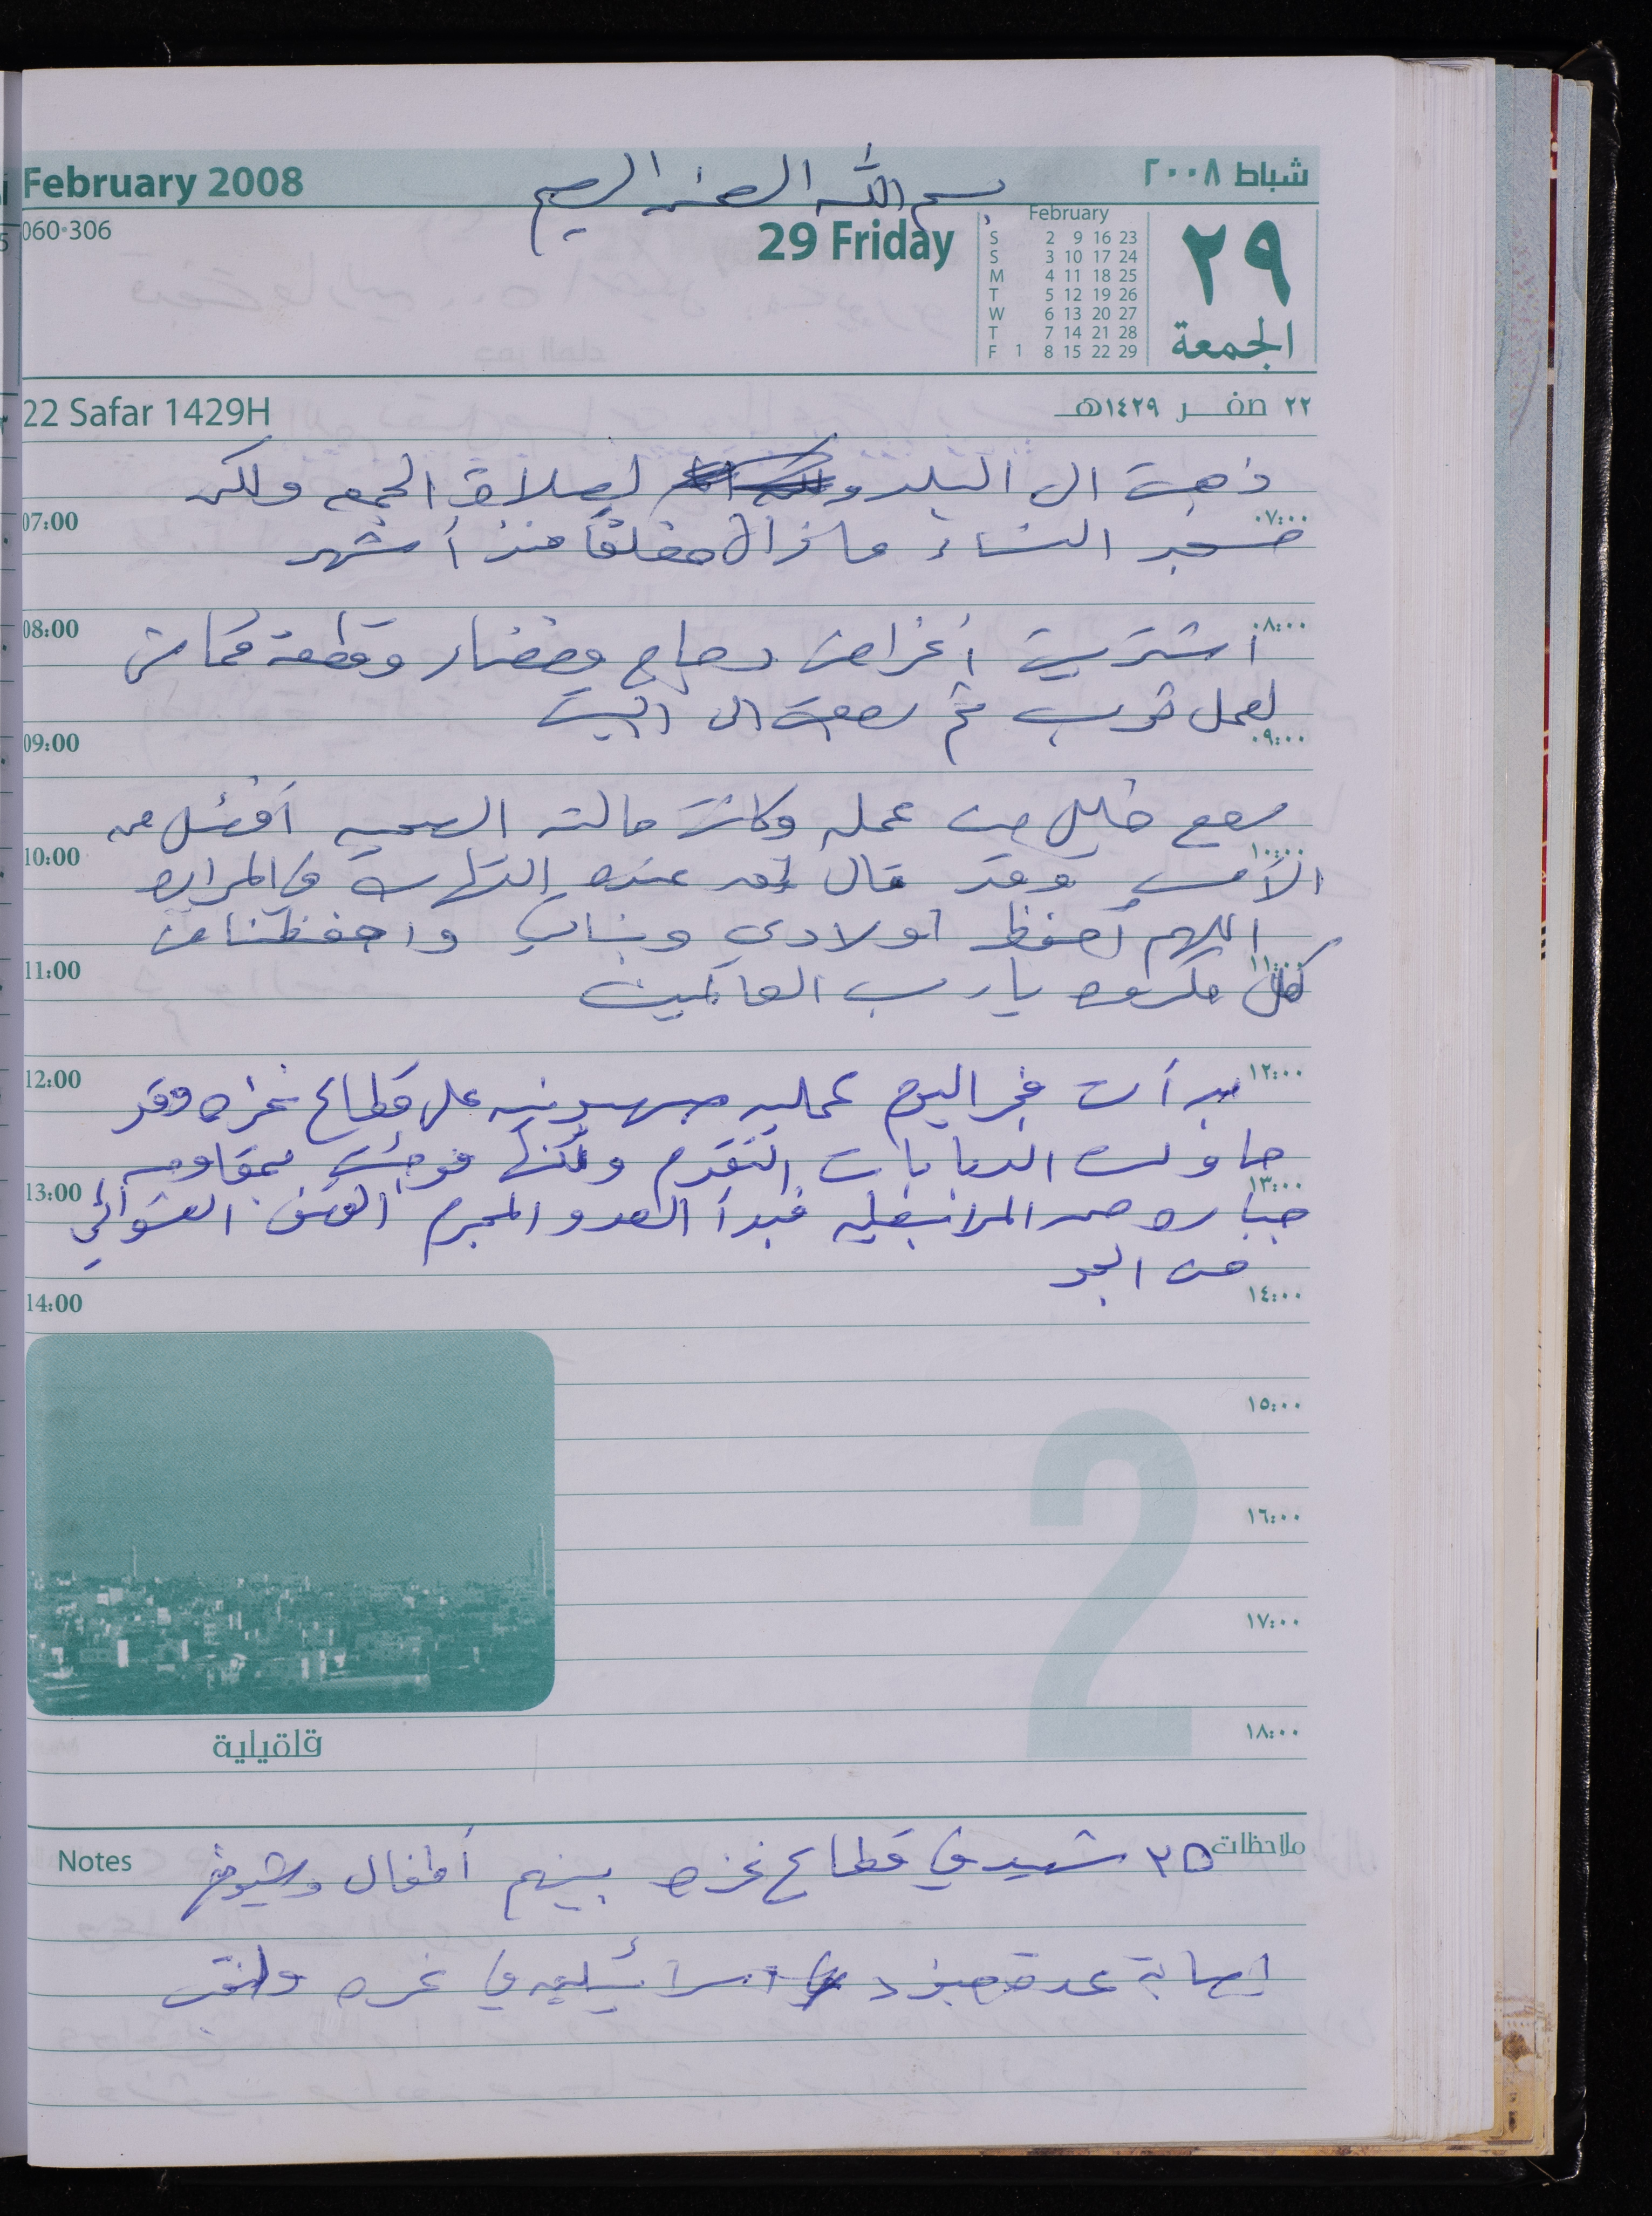 February 2008
شباط ٢٠٠٨
بسم الله الرحمن الرحيم
060-306
29 Friday
February
S 2 9 16 23
S 3 10 17 24
M 4 11 18 25
T 5 12 19 26
W 6 13 20 27
T 7 14 21 28
F 1 8 15 22 29
٢٩
الجمعة
22 Safar 1429H
٢٢ صفر ١٤٢٩هـ
ذهبت الى البلد و لصلاة الجمعه ولكن
07:00 ٠٧:٠٠
مسجد النساء ما زال مغلقاً منذ أشهر
08:00 ٠٨:٠٠
اشتريت أغراض دجاج وخضار وقطعة قماش
لعمل ثوب ثم رجعت الى البيت
09:00 ٠٩:٠٠
رجع خليل من عمله وكانت حالته الصحيه أفضل من
10:00 ١٠:٠٠
الأمس وقد قال انه عنده التهاب في المراره
اللهم احفظ اولادي وبناتي واحفظنا من
11:00 ١١:٠٠
كل مكروه يا رب العالمين
12:00 ١٢:٠٠
بدأت فجر اليوم عمليه صهيونيه على قطاع غزه وقد
حاولت الدبابات التقدم ولكنها فوجئت بمقاومه
13:00 ١٣:٠٠
جباره فبدأ العدو المجرم القصف العشوائي
من الجو
14:00 ١٤:٠٠
١٥:٠٠
2
١٦:٠٠
١٧:٠٠
قلقيلية
١٨:٠٠
Notes ملاحظات
٣٥ شهيد في قطاع غزه بينهم أطفال وشيوخ
إصابة عدة جنود اسرائيليين في غزه